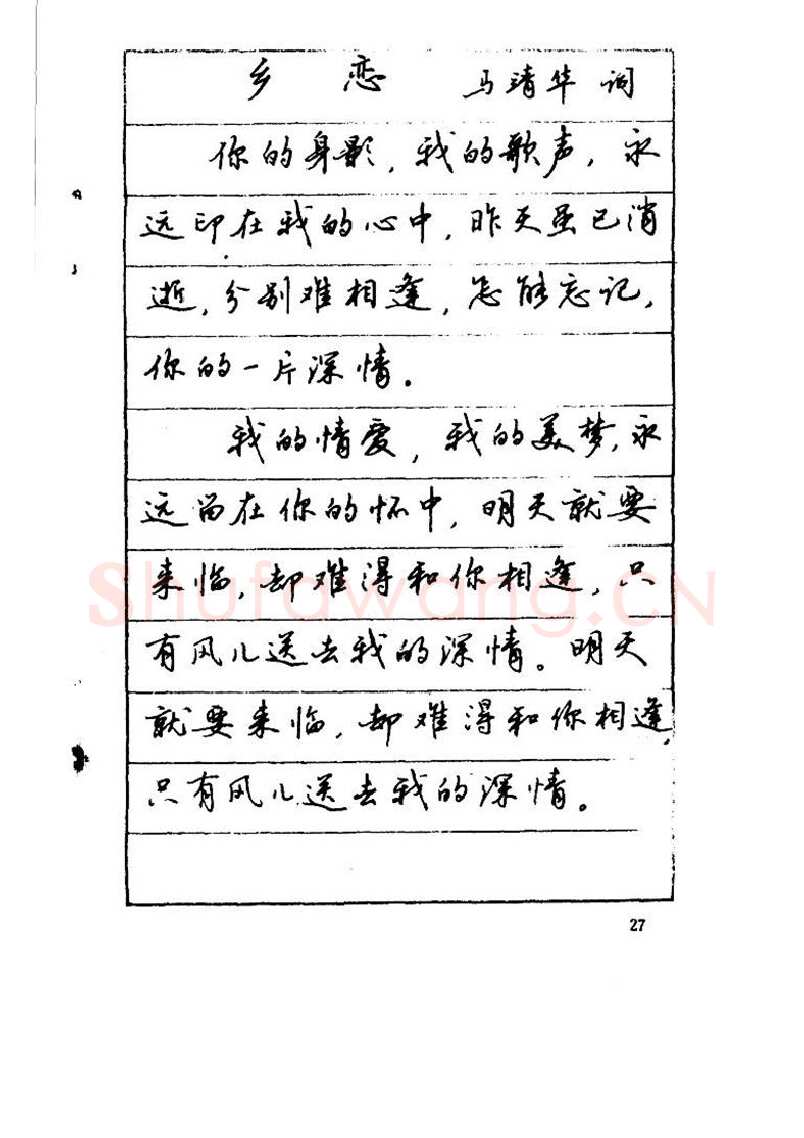 乡恋 马靖华 词
你的身影，我的歌声，永
远印在我的心中，昨天虽已消
逝，分别难相逢，怎能忘记，
你的一片深情。
我的情爱，我的美梦，永
远留在你的怀中，明天就要
来临，却难得和你相逢，只
有风儿送去我的深情。明天
就要来临，却难得和你相逢，
只有风儿送去我的深情。
27
Shufawang.CN